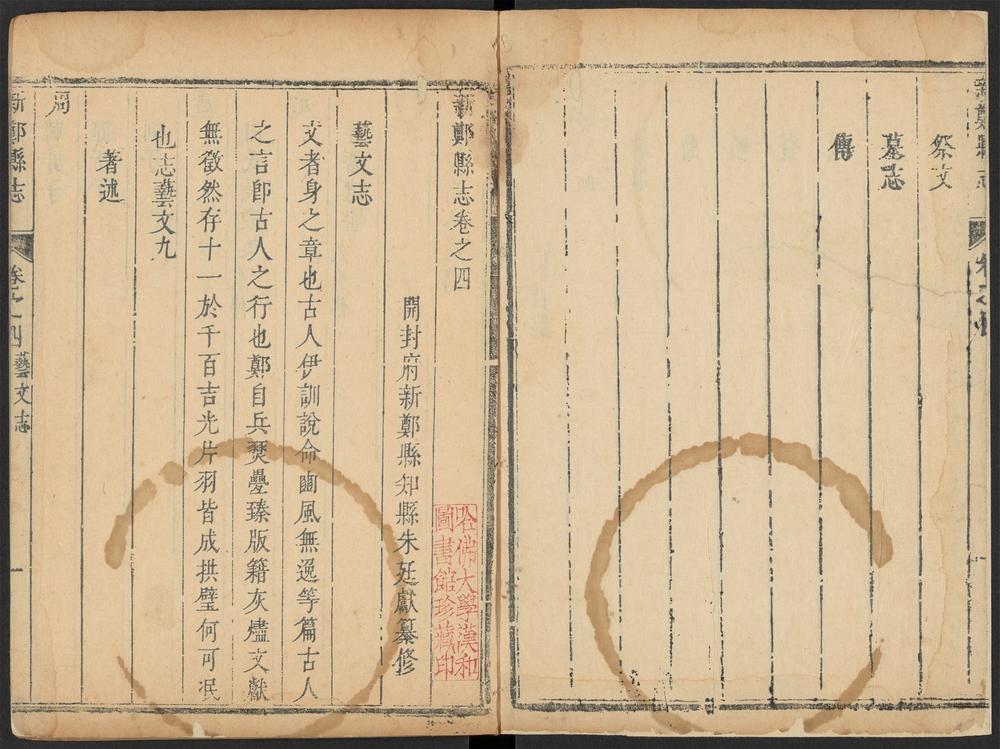 祭文
墓志
傳
新鄭縣志卷之四
開封府新鄭縣知縣朱廷獻纂修
哈佛大學漢和
圖書館珍藏印
藝文志
文者身之章也古人伊訓說命豳風無逸等篇古人
之言卽古人之行也鄭自兵燹疊臻版籍灰燼文獻
無徵然存十一於千百吉光片羽皆成拱璧何可泯
也志藝文九
著述
周
新鄭縣志
卷之四
藝文志
一